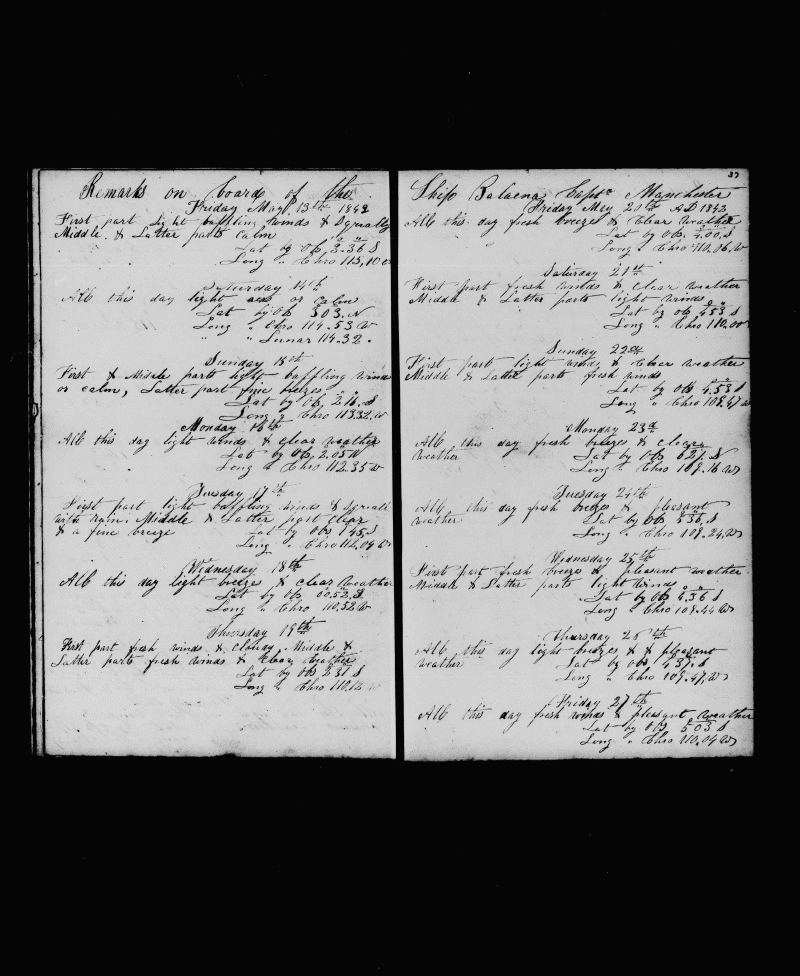 Remarks on board of the
Friday May 13th 1842
First part light baffling winds & Squally
Middle & Latter parts calm
Lat by Obs 3.36 S
Long " Chro 115,10 W
Saturday 14th
All this day light airs or calm
Lat by Obs 303 N
Long " Chro 114.53 W
" " Lunar 114.32.
Sunday 15th
First & Middle parts light baffling winds
or calm, Latter part fine breeze
Lat by Obs 2 16. S
Long " Chro 113.32 W
Monday 16th
All this day light winds & clear weather
Lat by Obs 2.05 N
Long " Chro 112.35 W
Tuesday 17th
First part light baffling winds & squall
with rain. Middle & Latter part clear
& a fine breeze Lat by Obs 1 45, S
Long " Chro 112,04 W
Wednesday 18th
All this day light breeze & clear weather
Lat by Obs 00.52, S.
Long " Chro 110.52 W
Thursday 19th
First part fresh winds & cloudy. Middle &
Latter parts fresh winds & clear weather
Lat by Obs 2 31 S
Long " Chro 110,12
37
Ship Balaena Capt. Manchester
Friday May 20th AD 1842
All this day fresh breezes & Clear weather
Lat by Obs. 4.00, S
Long " Chro 110.06, W
Saturday 21st
First part fresh winds & clear weather
Middle & Latter parts light winds
Lat by Obs 4 53 S
Long " Chro 110,00
Sunday 22d
First part light winds & Clear weather
Middle & Latter parts fresh winds
Lat by Obs 4.53 S
Long " Chro 109.47 W
Monday 23d
All this day fresh breezes & clear
weather Lat by Obs 6 27. S
Long " Chro 109.16 W
Tuesday 24th
All this day fresh breezes & pleasant
weather Lat by Obs 5 36, S
Long " Chro 109.24, W
Wednesday 25th
First part fresh breeze & pleasant weather
Middle & Latter parts light winds
Lat by Obs 4.36 S
Long " Chro 109.44 W
Thursday 26th
All this day light breezes & & pleasant
weather Lat by Obs 4 37, S
Long " Chro 109.47, W
Friday 27th
All this day fresh winds & pleasant weather
Lat by Obs 5 03 S
Long " Chro 110.04 W